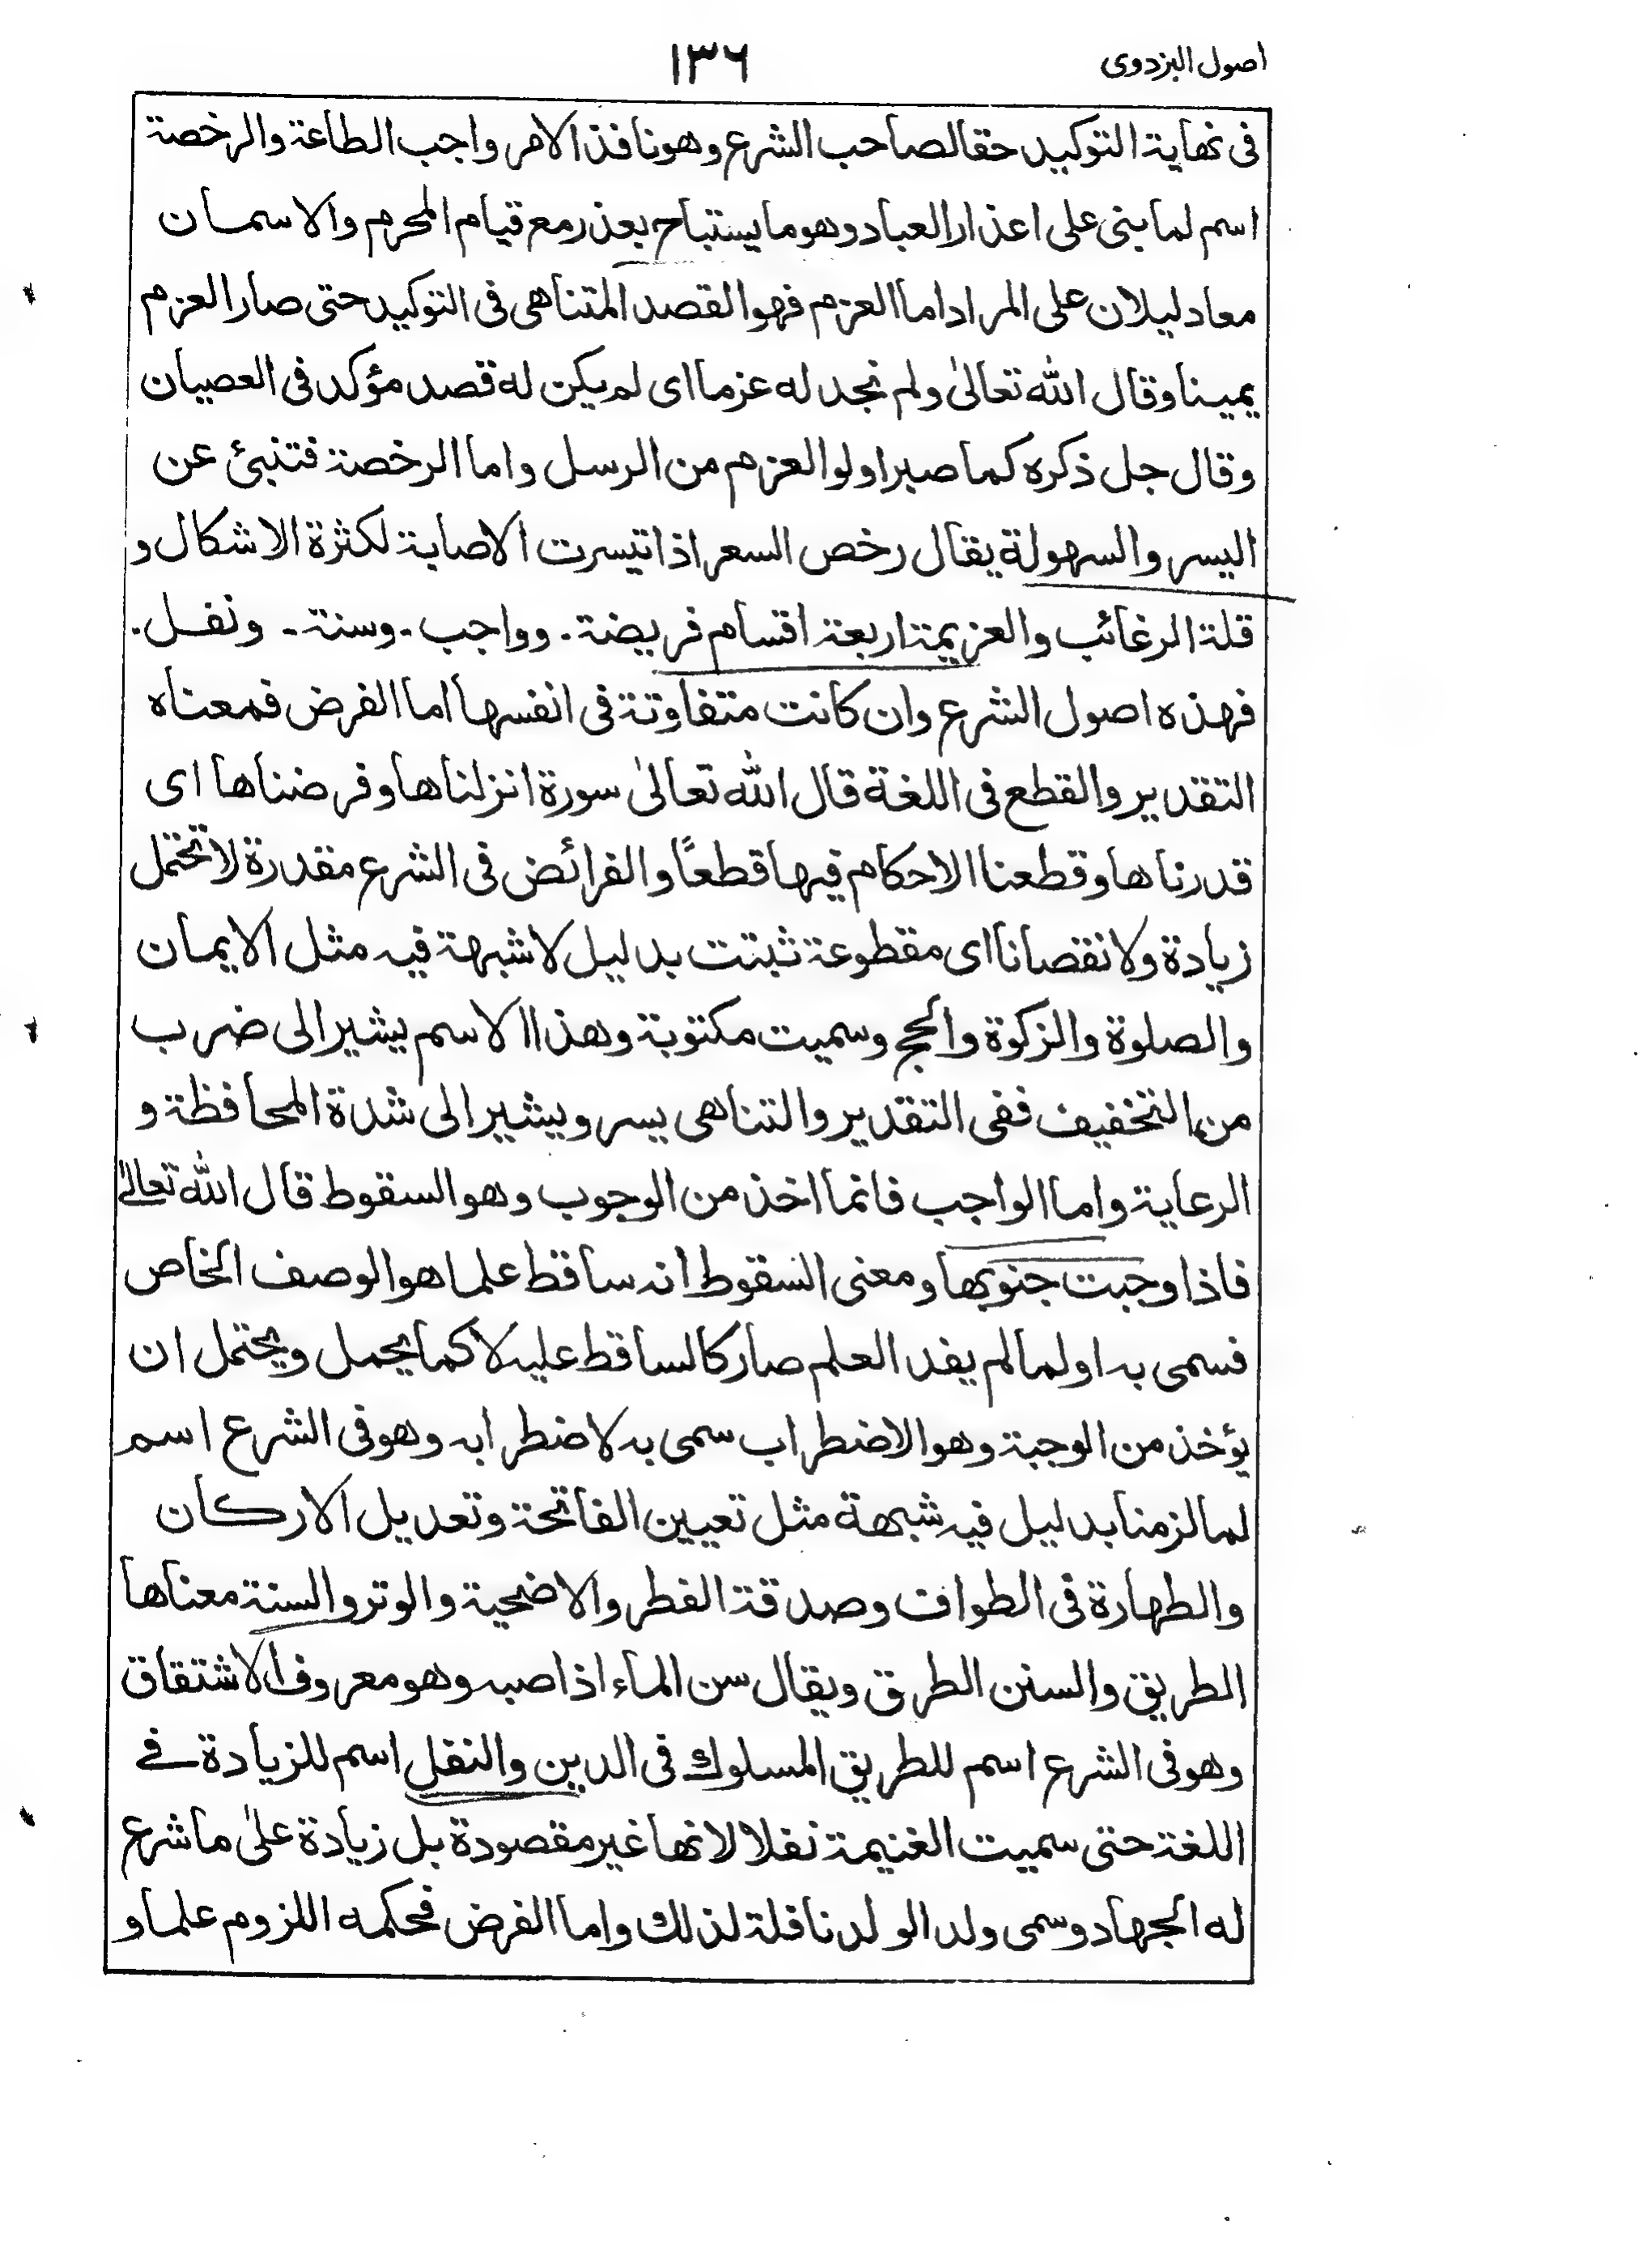 اصول البزدوی
۱۳۶
فی نهایة التوکید حقا لصاحب الشرع وهو نافذ الامر واجب الطاعة والرخصة
اسم لما بنی علی اعذار العباد وهو ما یستباح بعذر مع قیام المحرم والاسمان
معا دلیلان علی المراد اما العزم فهو القصد المتناهی فی التوکید حتی صار العزم
یمینا وقال الله تعالیٰ ولم نجد له عزما ای لم یکن له قصد مؤکد فی العصیان
وقال جل ذکره کما صبر اولوا العزم من الرسل واما الرخصة فتنبئ عن
الیسر والسهولة یقال رخص السعر اذا تیسرت الاصابة لکثرة الاشکال و
قلة الرغائب والعزیمة اربعة اقسام فریضة۔ وواجب۔ وسنة۔ ونفل۔
فهذه اصول الشرع وان کانت متفاوتة فی انفسها اما الفرض فمعناه
التقدیر والقطع فی اللغة قال الله تعالیٰ سورة انزلناها وفرضناها ای
قدرناها وقطعنا الاحکام فیها قطعًا والفرائض فی الشرع مقدرة لا تحتمل
زیادة ولا نقصانا ای مقطوعة ثبتت بدلیل لا شبهة فیه مثل الایمان
والصلوة والزکوة والحج وسمیت مکتوبة وهذا الاسم یشیر الی ضرب
من التخفیف ففی التقدیر والتناهی یسر ویشیر الی شدة المحافظة و
الرعایة واما الواجب فانما اخذ من الوجوب وهو السقوط قال الله تعالیٰ
فاذا وجبت جنوبها ومعنی السقوط انه ساقط علما هو الوصف الخاص
فسمی به او لما لم یفد العلم صار کالساقط علیه لا کما یحمل ویحتمل ان
یؤخذ من الوجبة وهو الاضطراب سمی به لاضطرابه وهو فی الشرع اسم
لما لزمنا بدلیل فیه شبهة مثل تعیین الفاتحة وتعدیل الارکان
والطهارة فی الطواف وصدقة الفطر والاضحیة والوتر والسنة معناها
الطریق والسنن الطرق ویقال سن الماء اذا صبه وهو معروف الاشتقاق
وهو فی الشرع اسم للطریق المسلوك فی الدین والنفل اسم للزیادة فے
اللغة حتی سمیت الغنیمة نفلا لانها غیر مقصودة بل زیادة علیٰ ما شرع
له الجهاد وسمی ولد الولد نافلة لذلك واما الفرض فحکمه اللزوم علما و